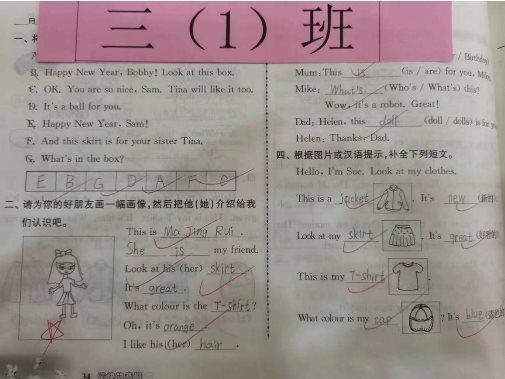 三（1）班
一、
B. Happy New Year, Bobby! Look at this box.
C. OK. You are so nice, Sam. Tina will like it too.
D. It's a ball for you.
E. Happy New Year, Sam!
F. And this skirt is for your sister Tina.
G. What's in the box?
E B G D A F C
二、请为你的好朋友画一幅画像,然后把他(她)介绍给我
们认识吧。
This is Ma Jing Rui.
She is my friend.
Look at his (her) skirt.
It's great.
What colour is the T-shirt?
Oh, it's orange.
I like his (her) hair.
/ Birthday)
Mum: This is (is / are) for you, Mike.
Mike: What's (Who's / What's) this?
Wow, it's a robot. Great!
Dad: Helen, this doll (doll / dolls) is for you.
Helen: Thanks, Dad.
四、根据图片或汉语提示,补全下列短文。
Hello, I'm Sue. Look at my clothes.
This is a jacket. It's new
Look at my skirt. It's great
This is my T-shirt.
What colour is my cap? It's blue